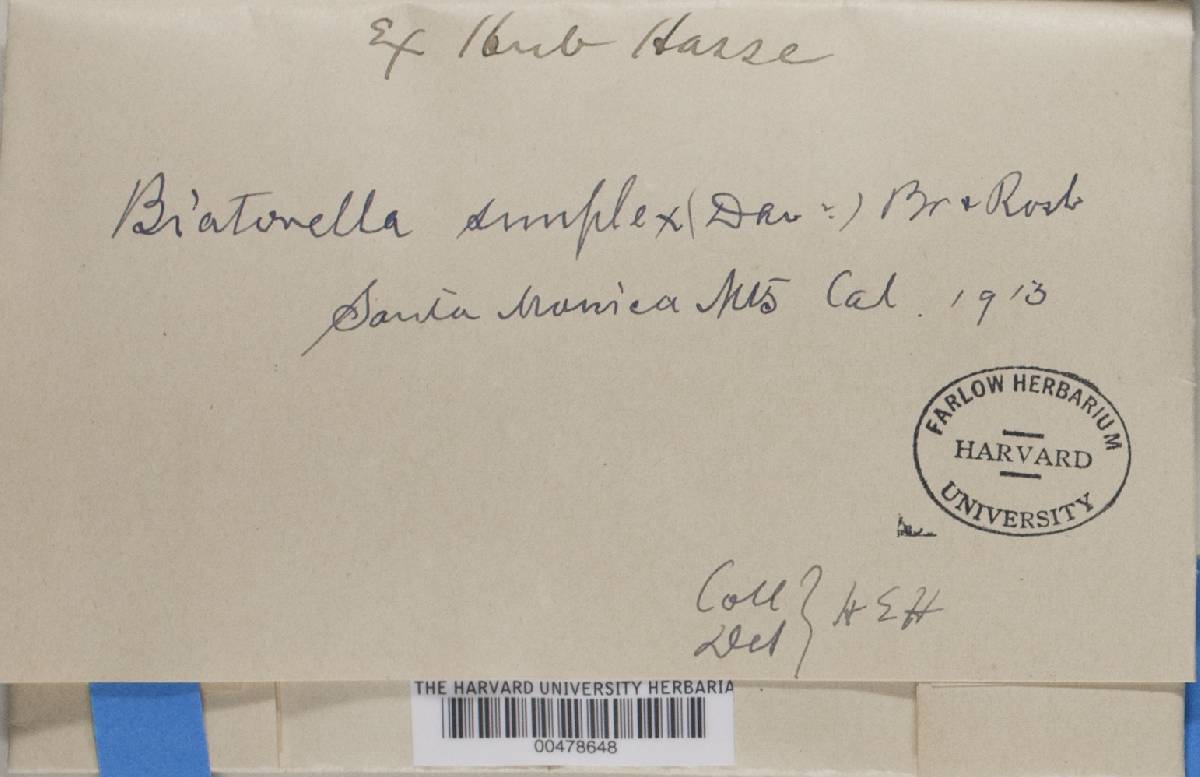 Ex Herb Hasse
Biatorella simplex (Dav.) Br & Rostr
Santa Monica Mts Cal. 1913
FARLOW HERBARIUM
HARVARD
UNIVERSITY
Coll
Det } H E H
THE HARVARD UNIVERSITY HERBARIA
00478648